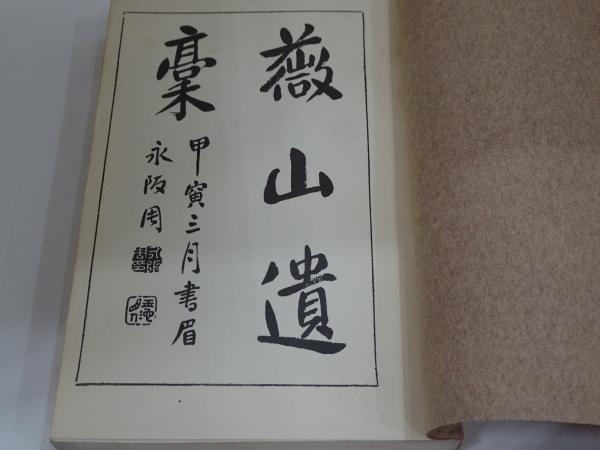 薇山遺
稾
甲寅三月書眉
永阪周